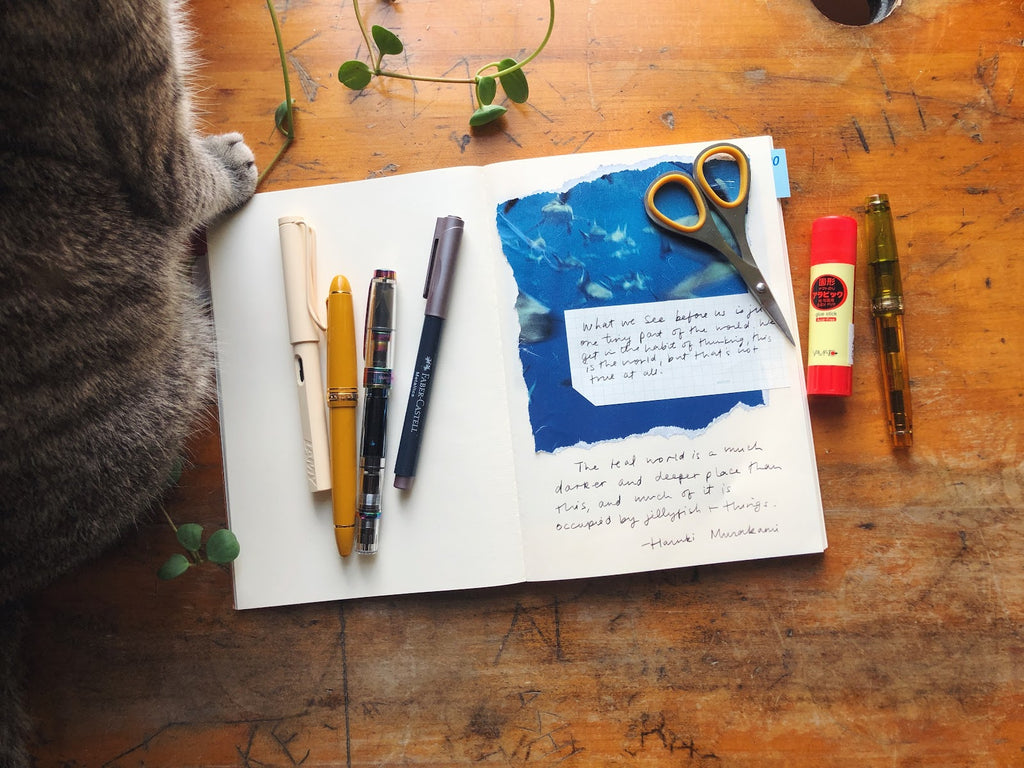 What we see before us is
one tiny part of the world. We
get in the habit of thinking, this
is the world, but that's not
true at all.
The real world is a much
darker and deeper place than
this, and much of it is
occupied by jillyfish + things.
-Haruki Murakami
FABER-CASTELL
固形
アラビック